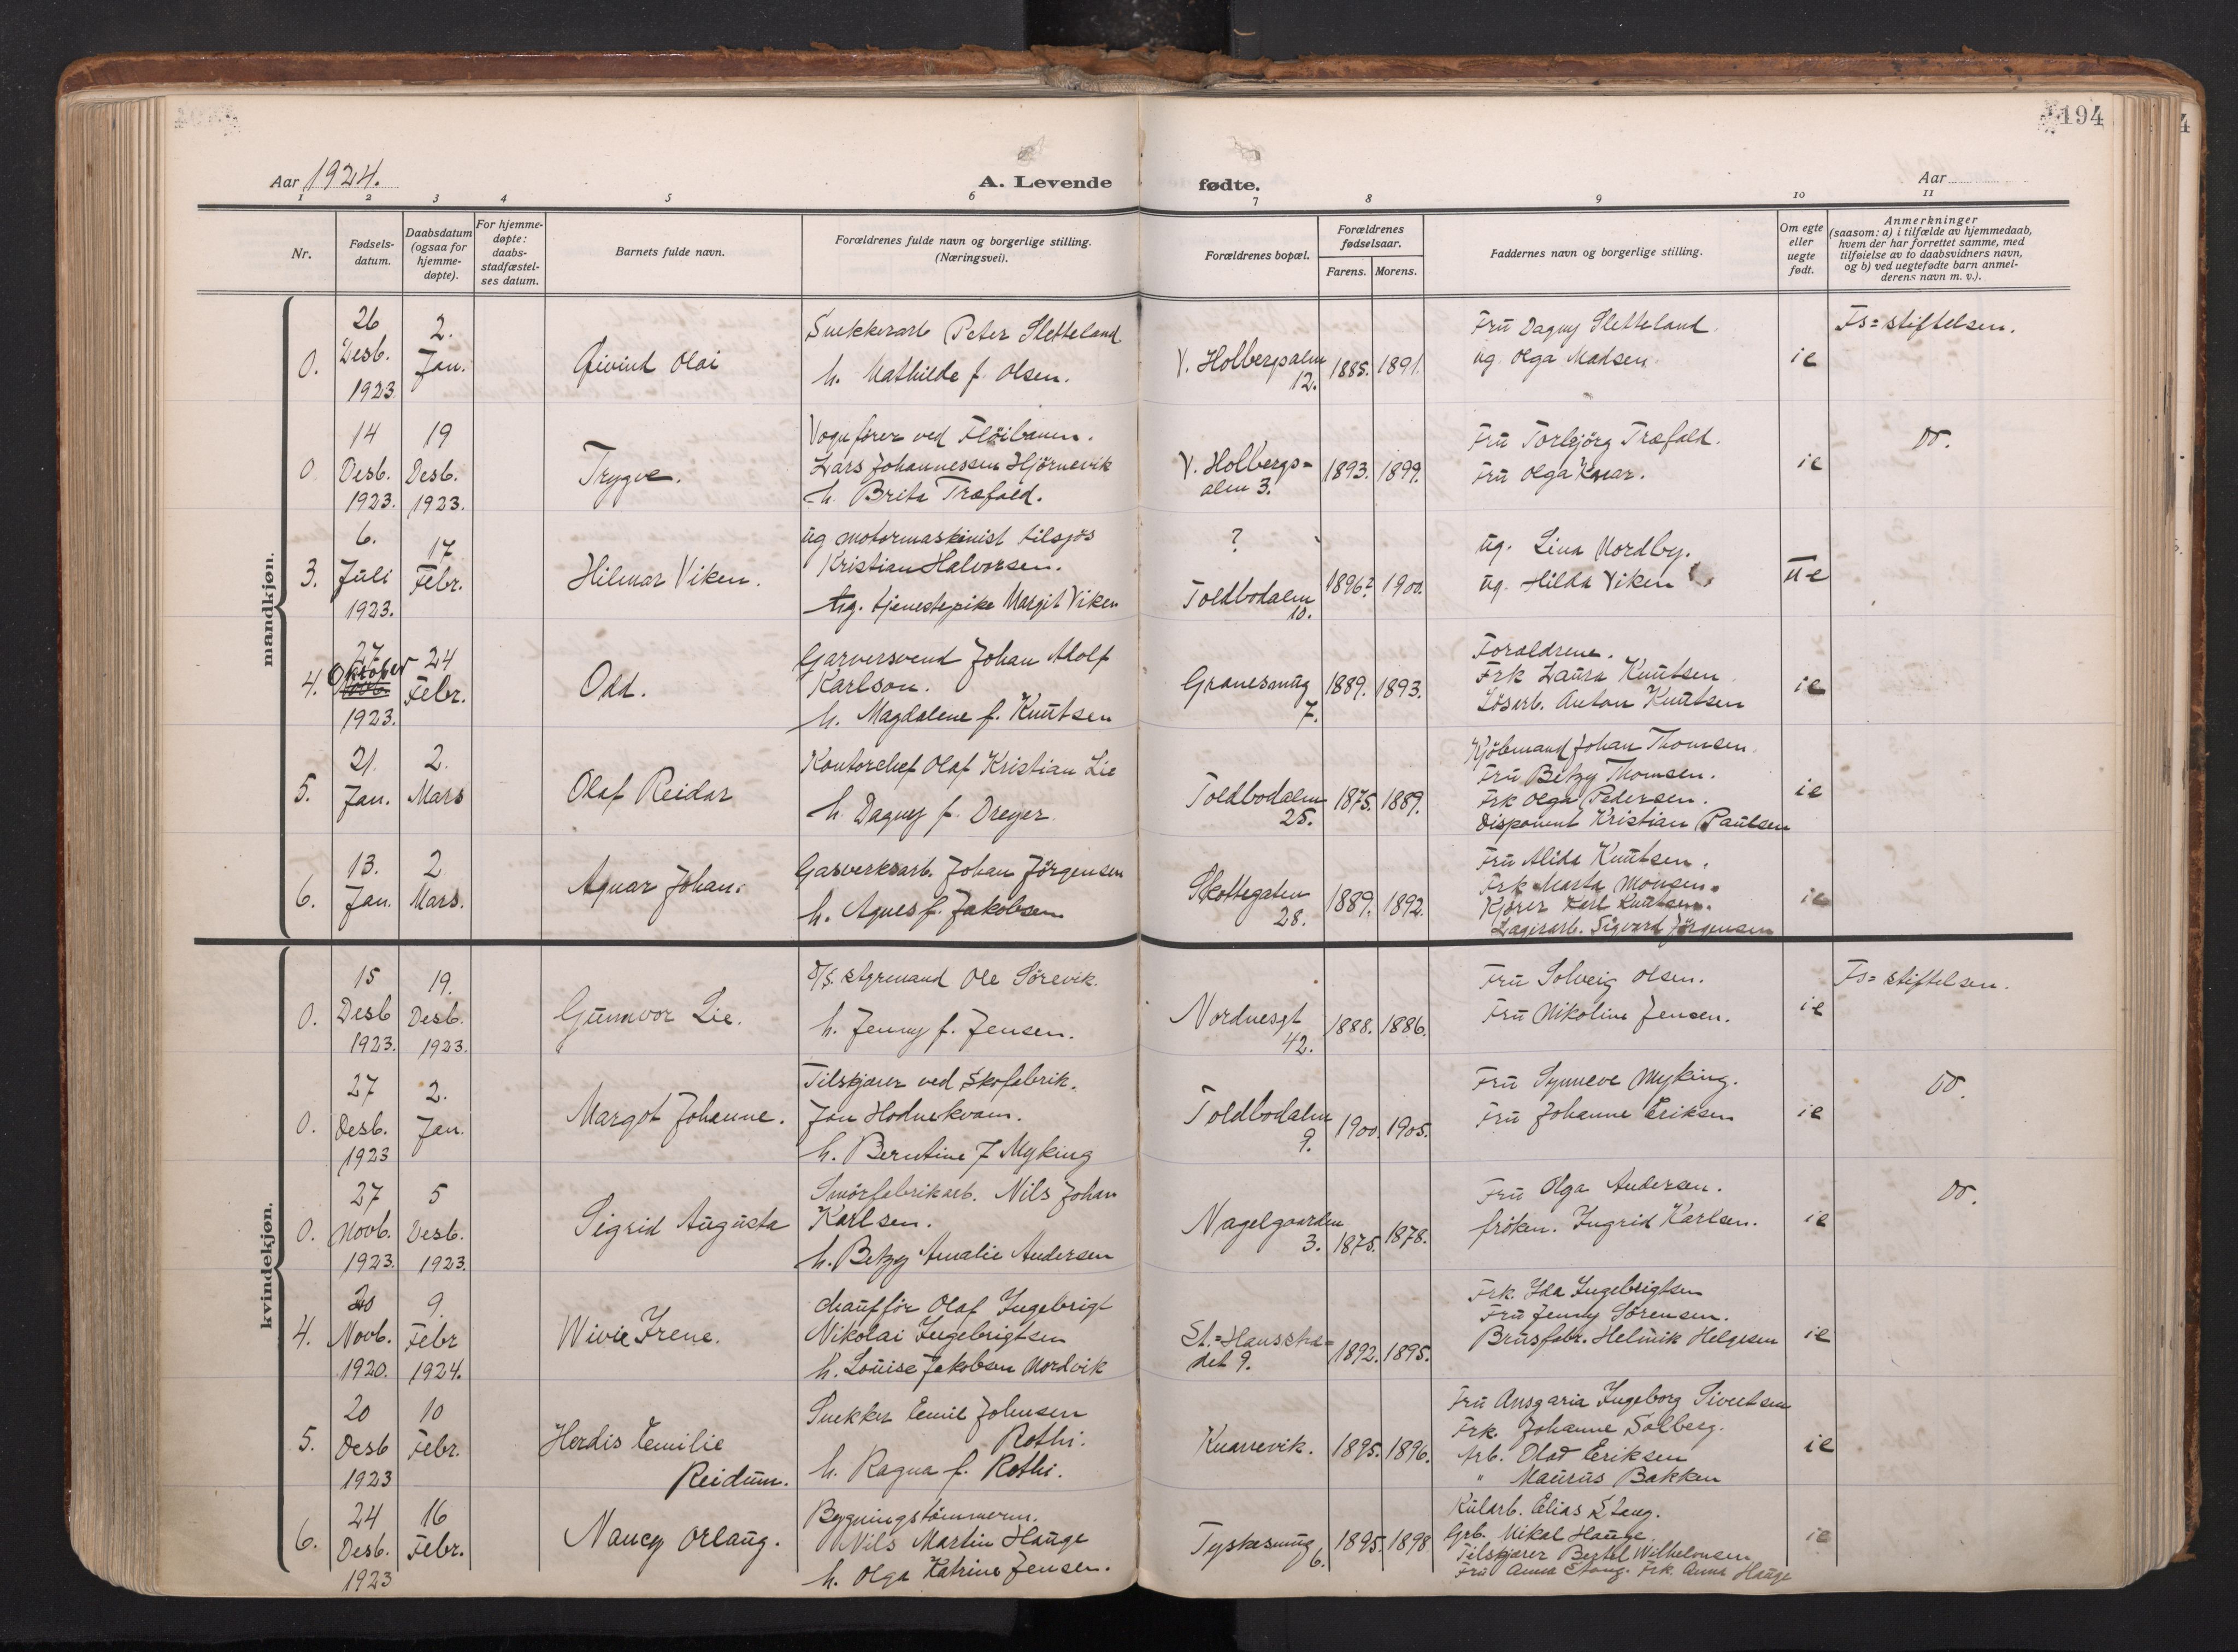 194
Aar 1924.
A. Levende fødte.
Aar
1 2 3 4 5 6 7 8 9 10 11
Nr.
Fødsels-
datum.
Daabsdatum
(ogsaa for
hjemme-
døpte).
For hjemme-
døpte:
daabs-
stadfæstel-
ses datum.
Barnets fulde navn.
Forældrenes fulde navn og borgerlige stilling.
(Næringsvei).
Forældrenes bopæl.
Forældrenes
fødselsaar.
Farens. Morens.
Faddernes navn og borgerlige stilling.
Om egte
eller
uegte
født.
Anmerkninger
(saasom: a) i tilfælde av hjemmedaab,
hvem der har forrettet samme, med
tilføielse av to daabsvidners navn,
og b) ved uegtefødte barn anmel-
derens navn m. v.).
mandkjøn.
0.
26
Desb.
1923
2.
Jan.
Øivind Olai
Snekkerarb Peter Sletteland
h. Mathilde f. Olsen.
V. Holbergsalm
12.
1885. 1891.
Fru Dagny Sletteland.
ug. Olga Madsen.
ie
Fs=stiftelsen.
0
14
Desb.
1923.
19
Desb.
1923.
Trygve.
Vognfører ved Fløibanen.
Lars Johannessen Hjørnevik
h. Brita Træfald.
V. Holbergs=
alm 3.
1893. 1899.
Fru Torbjörg Træfald.
Fru Olga
ie
do.
3.
6.
Juli
1923.
17
Febr.
Hilmar Viken.
ug motormaskinist tilsjøs
Kristian Halvorsen.
ug. tjenestepike Margit Viken
?
Toldbodalm
10.
1896? 1900.
ug. Lina Nordby.
ug. Hilda Viken
ue
4.
27
Oktober
1923.
24
Febr.
Odd.
Garversvend Johan Adolf
Karlson.
h. Magdalene f. Knutsen
Granesmug
7.
1889. 1893.
Forældrene.
Frk Laura Knutsen
Løsarb. Anton Knutsen
ie
5.
21.
Jan.
2.
Mars
Olaf Reidar
Kontorchef Olaf Kristian Lie
h. Dagny f. Dreyer.
Toldbodalm
25.
1875. 1889.
Kjøbmand Johan Thomsen.
Fru Betzy Thomsen.
Frk Olga Pedersen.
Disponent Kristian Paulsen
ie
6.
13.
Jan.
2
Mars.
Agnar Johan.
Gasverksarb. Johan Jörgensen
h. Agnes f. Jakobsen
Skottegaten
28.
1889. 1892.
Fru Alida Knutsen.
Frk Marta Monsen.
Kjører Karl Knutsen.
Lagerarb. Sigvard Jörgensen
ie
kvindekjøn.
0.
15
Desb
1923.
19.
Desb.
1923.
Gunnvor Lie.
D/S. styrmand Ole Sörevik.
h. Jenny f. Jensen.
Nordnesgt
42.
1888. 1886.
Fru Solveig Olsen.
Fru Nikoline Jensen.
ie
Fs=stiftelsen.
0.
27
Desb.
1923
2.
Jan.
Margot Johanne.
Tilskjærer ved Skofabrik.
Jon Hodnekvam.
h. Berntine f Myking
Toldbodalm
9.
1900. 1905.
Fru Synneve Myking.
Fru Johanne Eriksen
ie
do.
0.
27
Novb.
1923.
5
Desb.
1923.
Sigrid Augusta
Smörfabrikarb. Nils Johan
Karlsen.
h. Betzy Amalie Andersen
Nagelgaarden
3.
1875. 1878.
Fru Olga Andersen.
frøken. Ingrid Karlsen.
ie
do.
4.
20
Novb.
1920.
9.
Febr
1924.
Wivie Irene.
chaufför Olaf Ingebrigt
Nikolai Ingebrigtsen
h. Louise Jakobsen Nordvik
St.=Hansstræ=
det 9.
1892. 1895.
Frk. Ida Ingebrigtsen
Fru Jenny Sörensen.
Brusfabr. Helmik Helgesen
ie
5.
20
Desb
1923
10
Febr.
Herdis Emilie
Reidun.
Snekker Emil Johnsen
Rothi.
h. Ragna f. Rothi.
Knarrevik.
1895. 1896.
Fru Ansgaria Ingeborg Sivertsen
Frk. Johanne Solberg.
Arb. Olaf Eriksen
" Maurus Bakken
ie
6.
24
Desb.
1923
16
Febr.
Nancy Orlaug.
Bygningstømmerm.
Nils Martin Hauge
h. Olga Katrine Jensen.
Tyskesmug
6.
1895. 1898
Kularb. Elias Stang.
Grb. Nikal Hauge.
Tilskjærer Bertel Wilhelmsen
Fru Anna Stang. Frk. Anna Hauge
ie